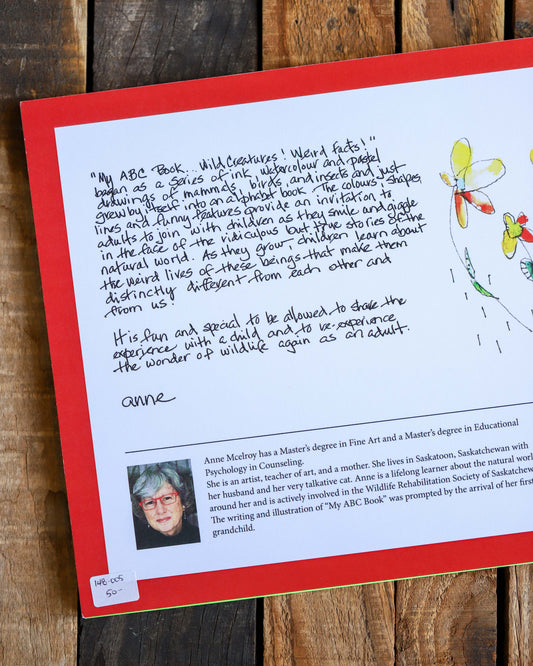 "My ABC Book... Wild Creatures! Weird facts!"
began as a series of ink, watercolour and pastel
drawings of mammals, birds, and insects and just
grew by itself into an alphabet book. The colours, shapes
lines and funny features provide an invitation to
adults to join with children as they smile and giggle
in the face of the ridiculous but true stories of the
natural world. As they grow, children learn about
the weird lives of these beings that make them
distinctly different from each other and
from us.
It is fun and special to be allowed to share the
experience with a child and to re-experience
the wonder of wildlife again as an adult.
anne
Anne Mcelroy has a Master's degree in Fine Art and a Master's degree in Educational
Psychology in Counseling.
She is an artist, teacher of art, and a mother. She lives in Saskatoon, Saskatchewan with
her husband and her very talkative cat. Anne is a lifelong learner about the natural worl
around her and is actively involved in the Wildlife Rehabilitation Society of Saskatchew
The writing and illustration of "My ABC Book" was prompted by the arrival of her first
grandchild.
148-005
50-